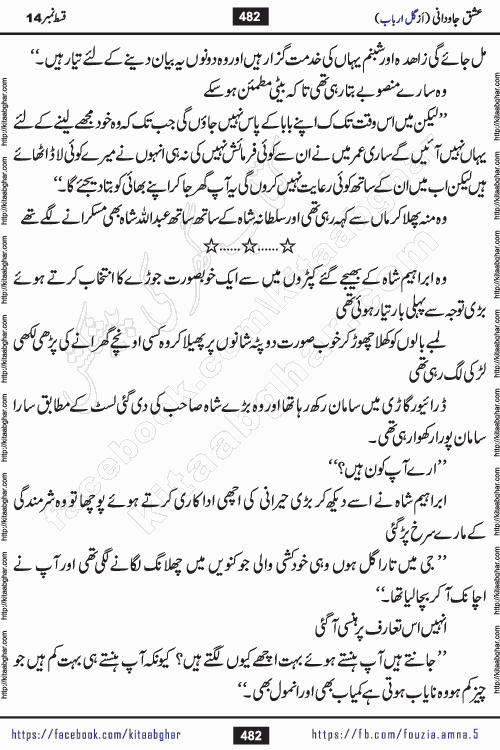 عشق جاودانی (از گل ارباب) 482 قسط نمبر 14
مل جائے گی زاہدہ اور شبنم یہاں کی خدمت گزار ہیں اور وہ دونوں یہ بیان دینے کے لئے تیار ہیں۔‘‘
وہ سارے منصوبے بتا رہی تھی تاکہ بیٹی مطمئن ہو سکے
’’لیکن میں اس وقت تک ک اپنے بابا کے پاس نہیں جاؤں گی جب تک کہ وہ خود مجھے لینے کے لئے
یہاں نہیں آئیں گے ساری عمر میں نے ان سے کوئی فرمائش نہیں کی نہ ہی انہوں نے میرے کوئی لاڈ اٹھائے
ہیں لیکن اب میں ان کے ساتھ کوئی رعایت نہیں کروں گی یہ آپ گھر جا کر اپنے بھائی کو بتا دیجئے گا۔‘‘
وہ منہ پھلا کر ماں سے کہہ رہی تھی اور سلطانہ شاہ کے ساتھ ساتھ عبداللہ شاہ بھی مسکرانے لگے تھے
☆......☆......☆
وہ ابراہیم شاہ کے بھیجے گئے کپڑوں میں سے ایک خوبصورت جوڑے کا انتخاب کرتے ہوئے
بڑی توجہ سے پہلی بار تیار ہوئی تھی
لمبے بالوں کو کھلا چھوڑ کر خوب صورت دوپٹہ شانوں پر پھیلا کر وہ کسی اونچے گھرانے کی پڑھی لکھی
لڑکی لگ رہی تھی
ڈرائیور گاڑی میں سامان رکھ رہا تھا اور وہ بڑے شاہ صاحب کی دی گئی لسٹ کے مطابق سارا
سامان پورا رکھوا رہی تھی۔
’’ارے آپ کون ہیں؟‘‘
ابراہیم شاہ نے اسے دیکھ کر بڑی حیرانی کی اچھی اداکاری کرتے ہوئے پوچھا تو وہ شرمندگی
کے مارے سرخ پڑ گئی
’’ جی میں تارا گل ہوں وہی خودکشی والی جو کنویں میں چھلانگ لگانے لگی تھی اور آپ نے
اچانک آ کر بچا لیا تھا۔‘‘
انہیں اس تعارف پر ہنسی آ گئی
’’جانتے ہیں آپ ہنستے ہوئے بہت اچھے کیوں لگتے ہیں؟ کیونکہ آپ ہنستے ہی بہت کم ہیں جو
چیز کم ہو وہ نایاب ہوتی ہے کمیاب بھی اور انمول بھی۔‘‘
https://facebook.com/kitaabghar 482 https://fb.com/fouzia.amna.5
http://kitaabghar.com
facebook.com/kitaabghar
kitaabghar.com